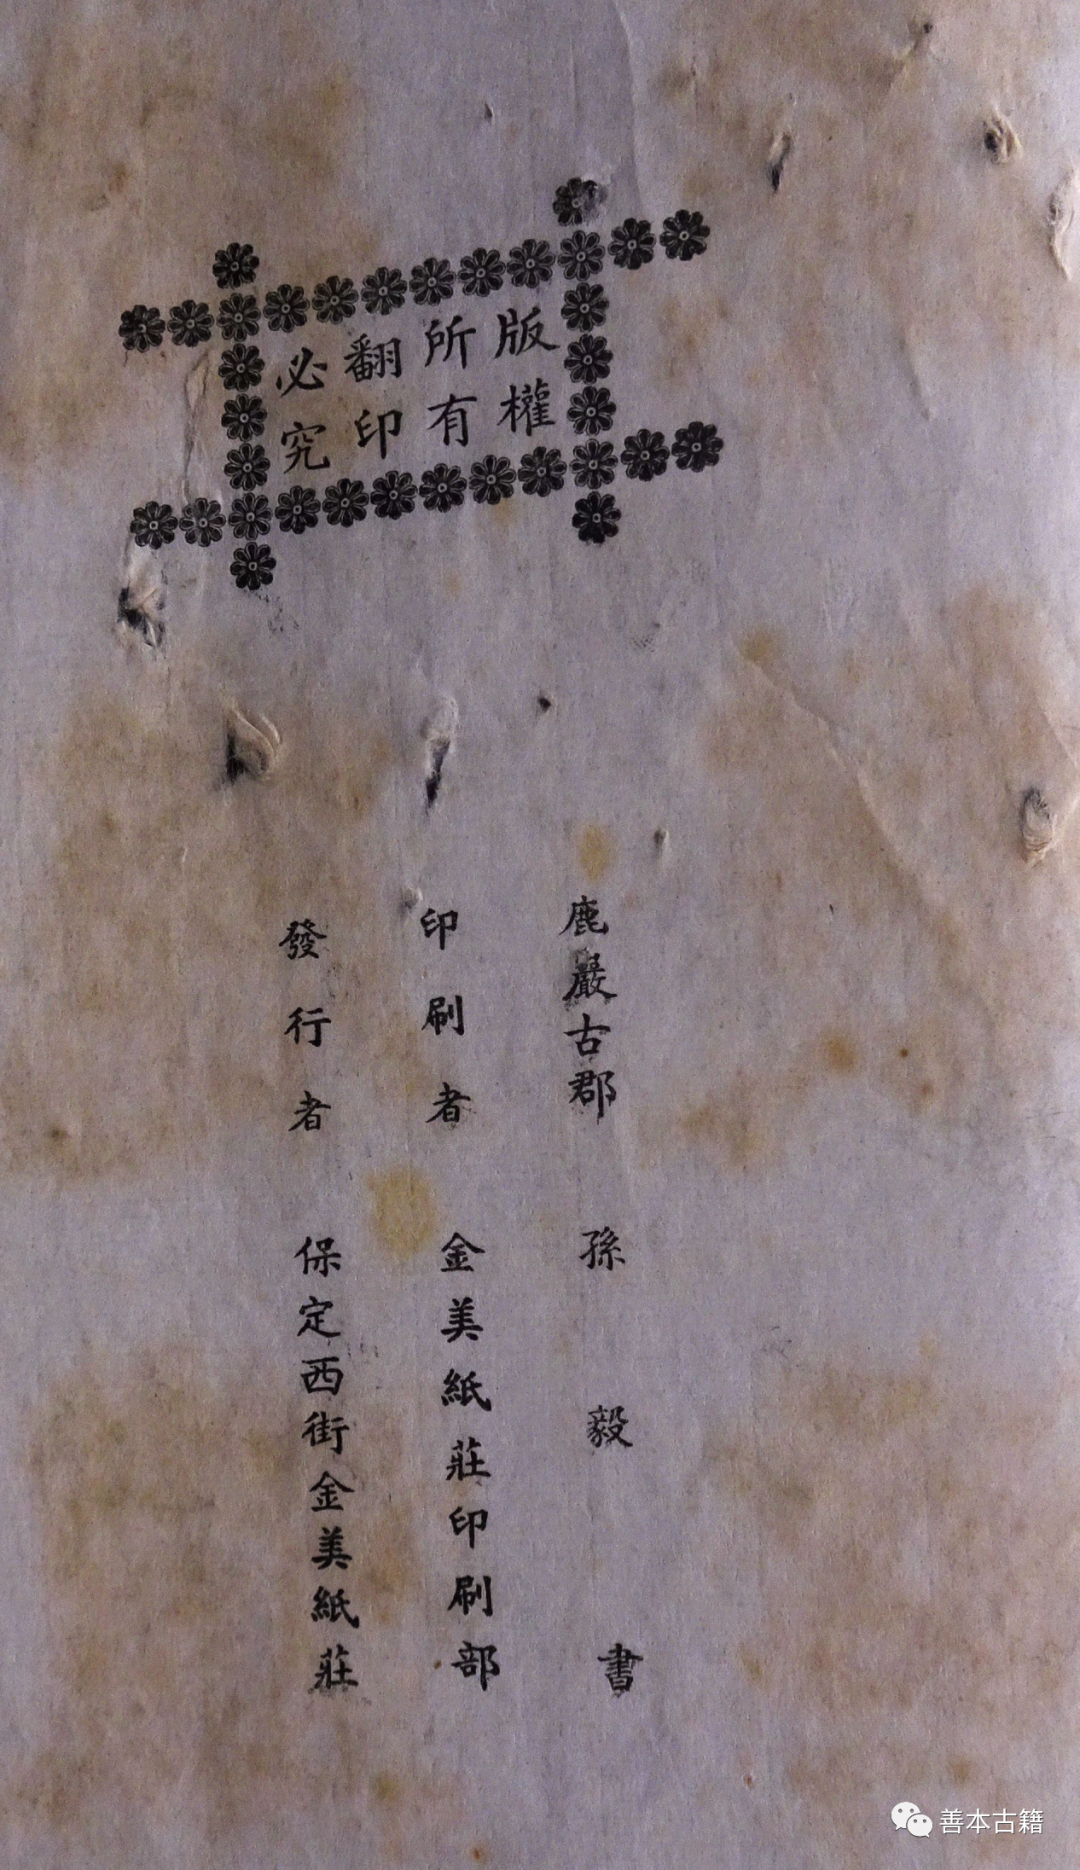 版權
所有
翻印
必究
鹿巖古郡 孫毅書
印刷者 金美紙莊印刷部
發行者 保定西街金美紙莊
善本古籍